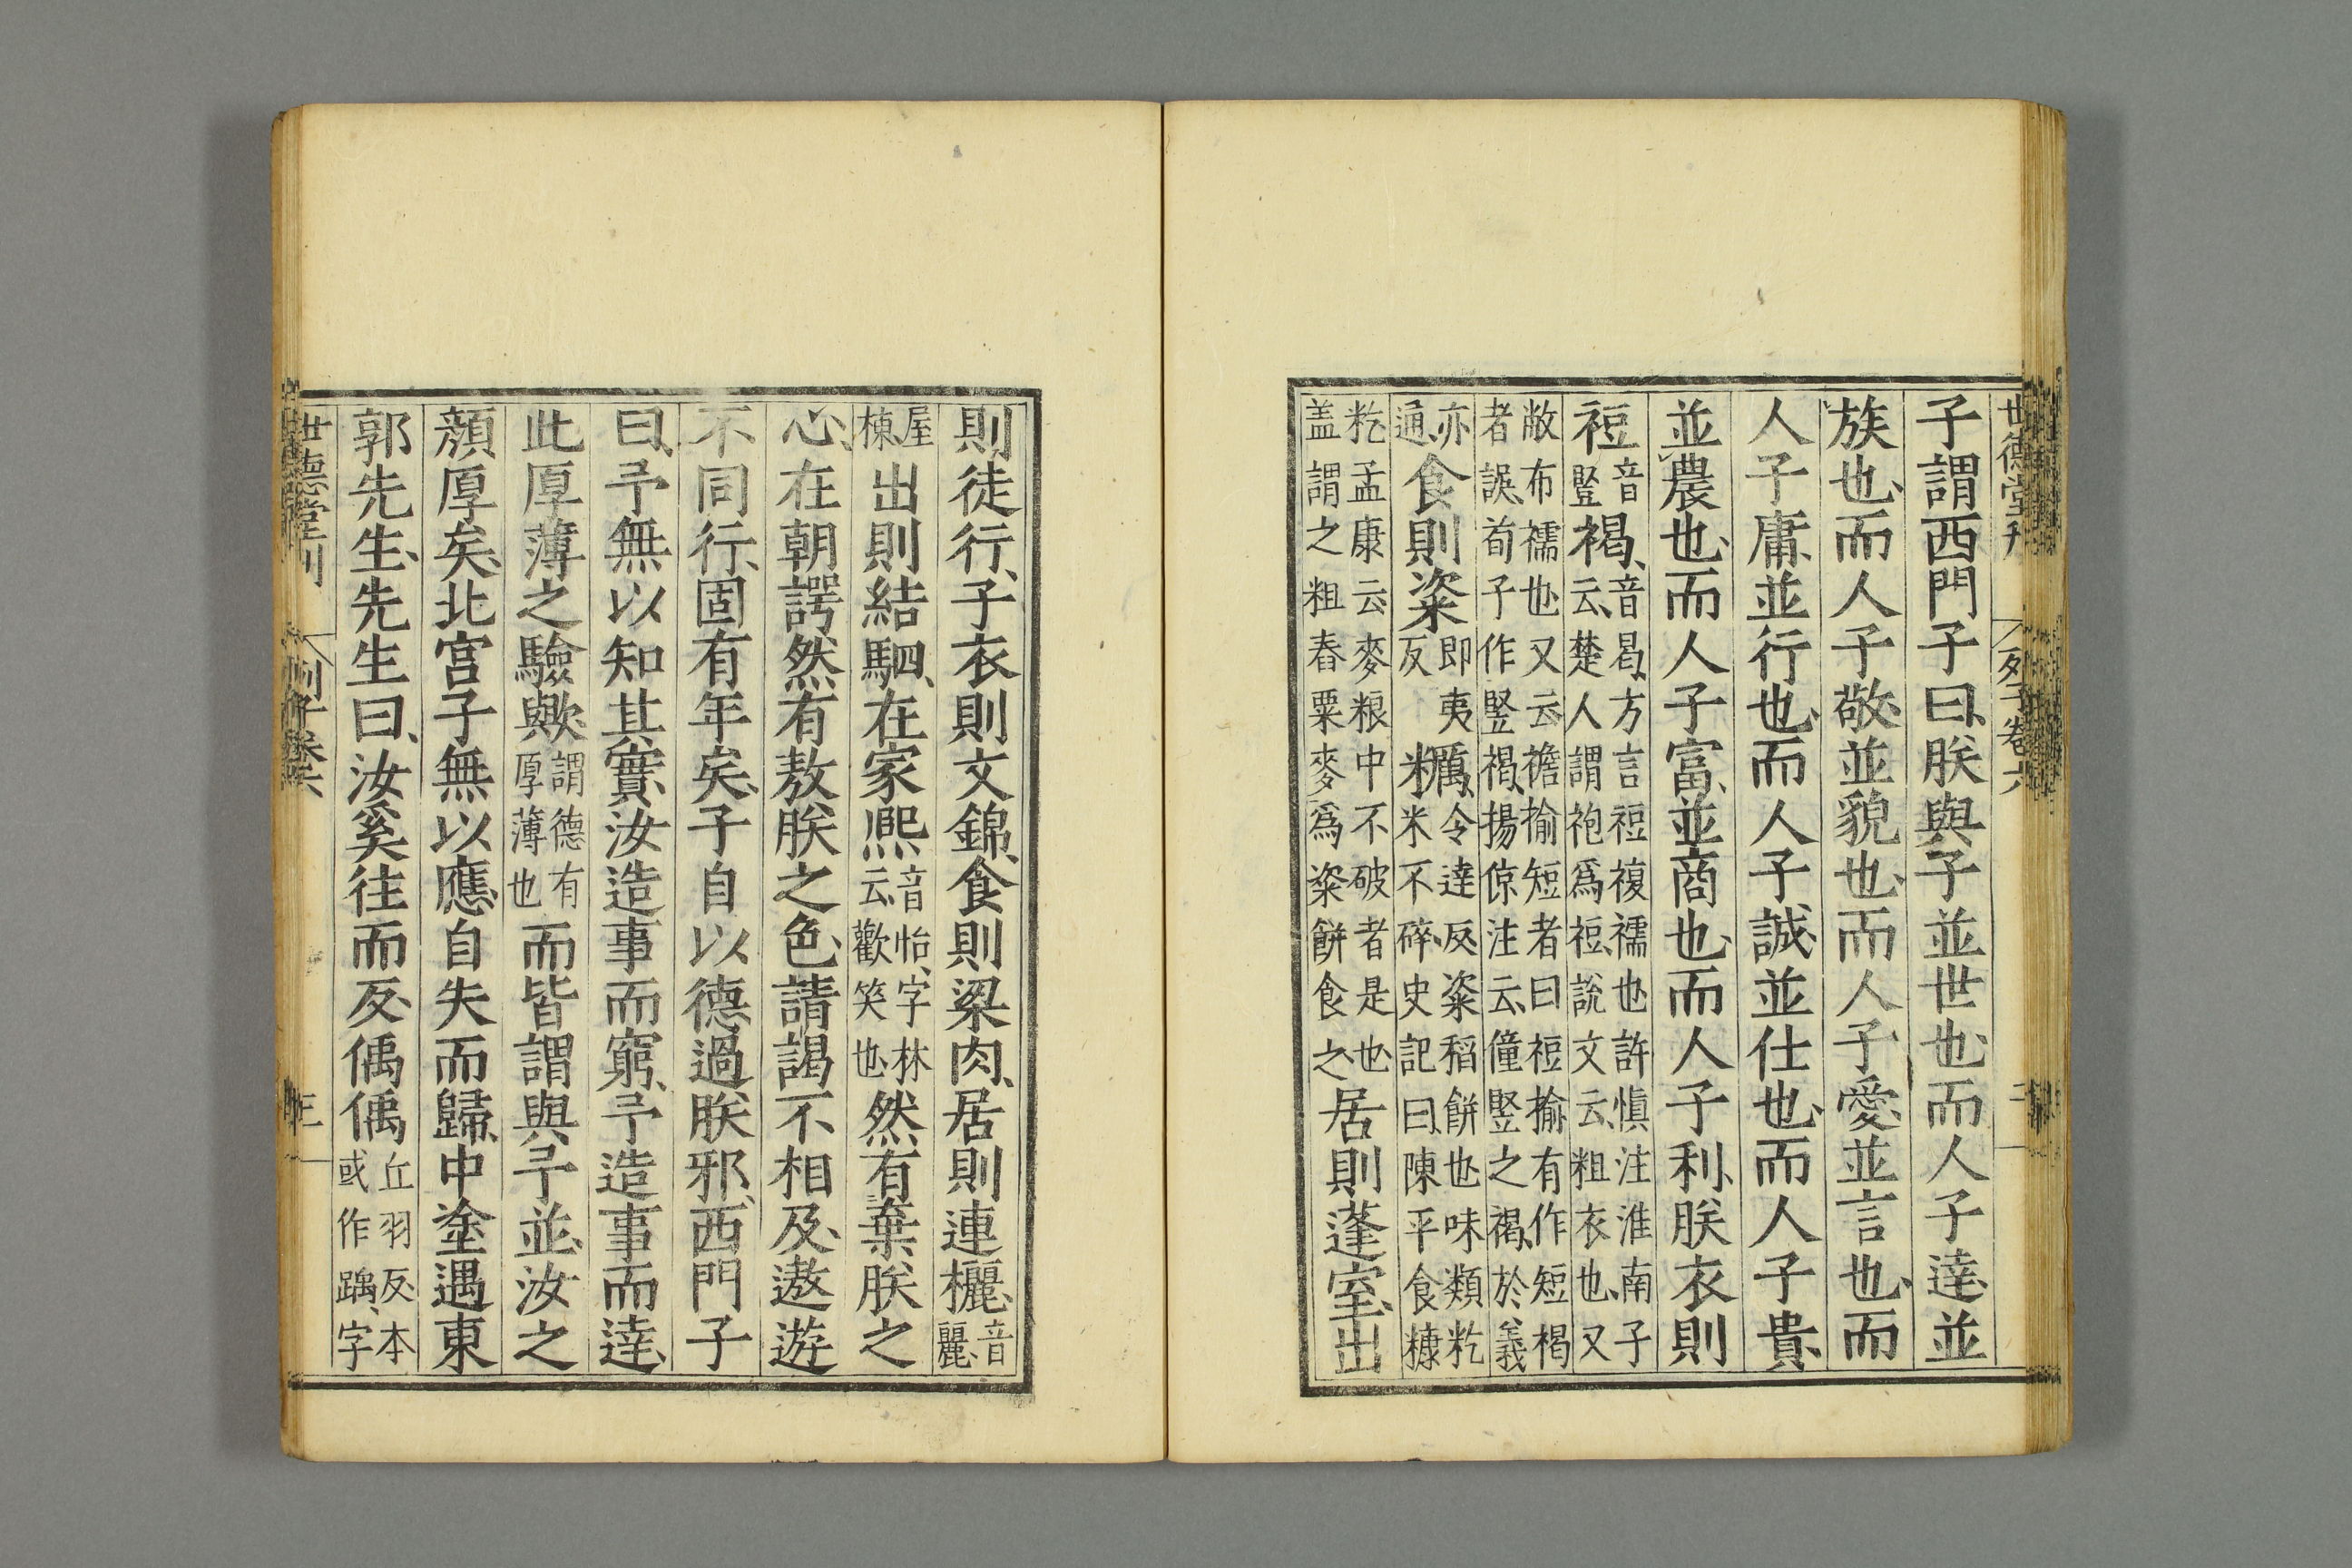 世德堂刊
列子卷六
二
子謂西門子曰、朕與子並世也、而人子達、並
族也、而人子敬、並貌也、而人子愛、並言也、而
人子庸、並行也、而人子誠、並仕也、而人子貴、
並農也、而人子富、並商也、而人子利、朕衣則
裋音豎褐、音曷、方言裋複襦也許慎注淮南子云、楚人謂袍為裋、說文云、粗衣也、又
敝布襦也、又云襜揄短者曰裋揄、有作短褐者誤、荀子作豎褐、揚倞注云、僮豎之褐、於義
亦通、食則粢即夷反糲、令達反粢稻餅也味類籺米不碎、史記曰、陳平食糠
籺孟康云麥粮中不破者是也盖謂之粗舂粟麥爲粢餅食之居則蓬室、出
則徒行、子衣則文錦、食則粱肉、居則連欐、音麗、
屋棟、出則結駟、在家熈音怡、字林云、歡笑也、然有棄朕之
心、在朝諤然有敖朕之色、請謁不相及、遨遊
不同行、固有年矣、子自以德過朕邪、西門子
曰、予無以知其實、汝造事而窮、予造事而達、
此厚薄之驗歟、謂德有厚薄也而皆謂與予並、汝之
顏厚矣、北宮子無以應、自失而歸、中塗遇東
郭先生、先生曰、汝奚往而反、偊偊丘羽反、本或作踽、字
世德堂刊
列子卷六
三